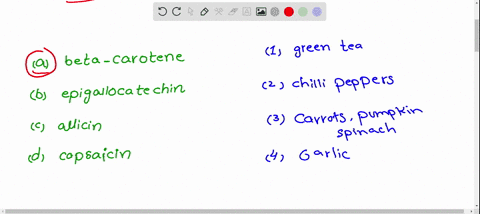 (a) beta-carotene
(b) epigallocatechin
(c) allicin
(d) capsaicin
(1) green tea
(2) chilli peppers
(3) Carrots, pumpkin
spinach
(4) Garlic